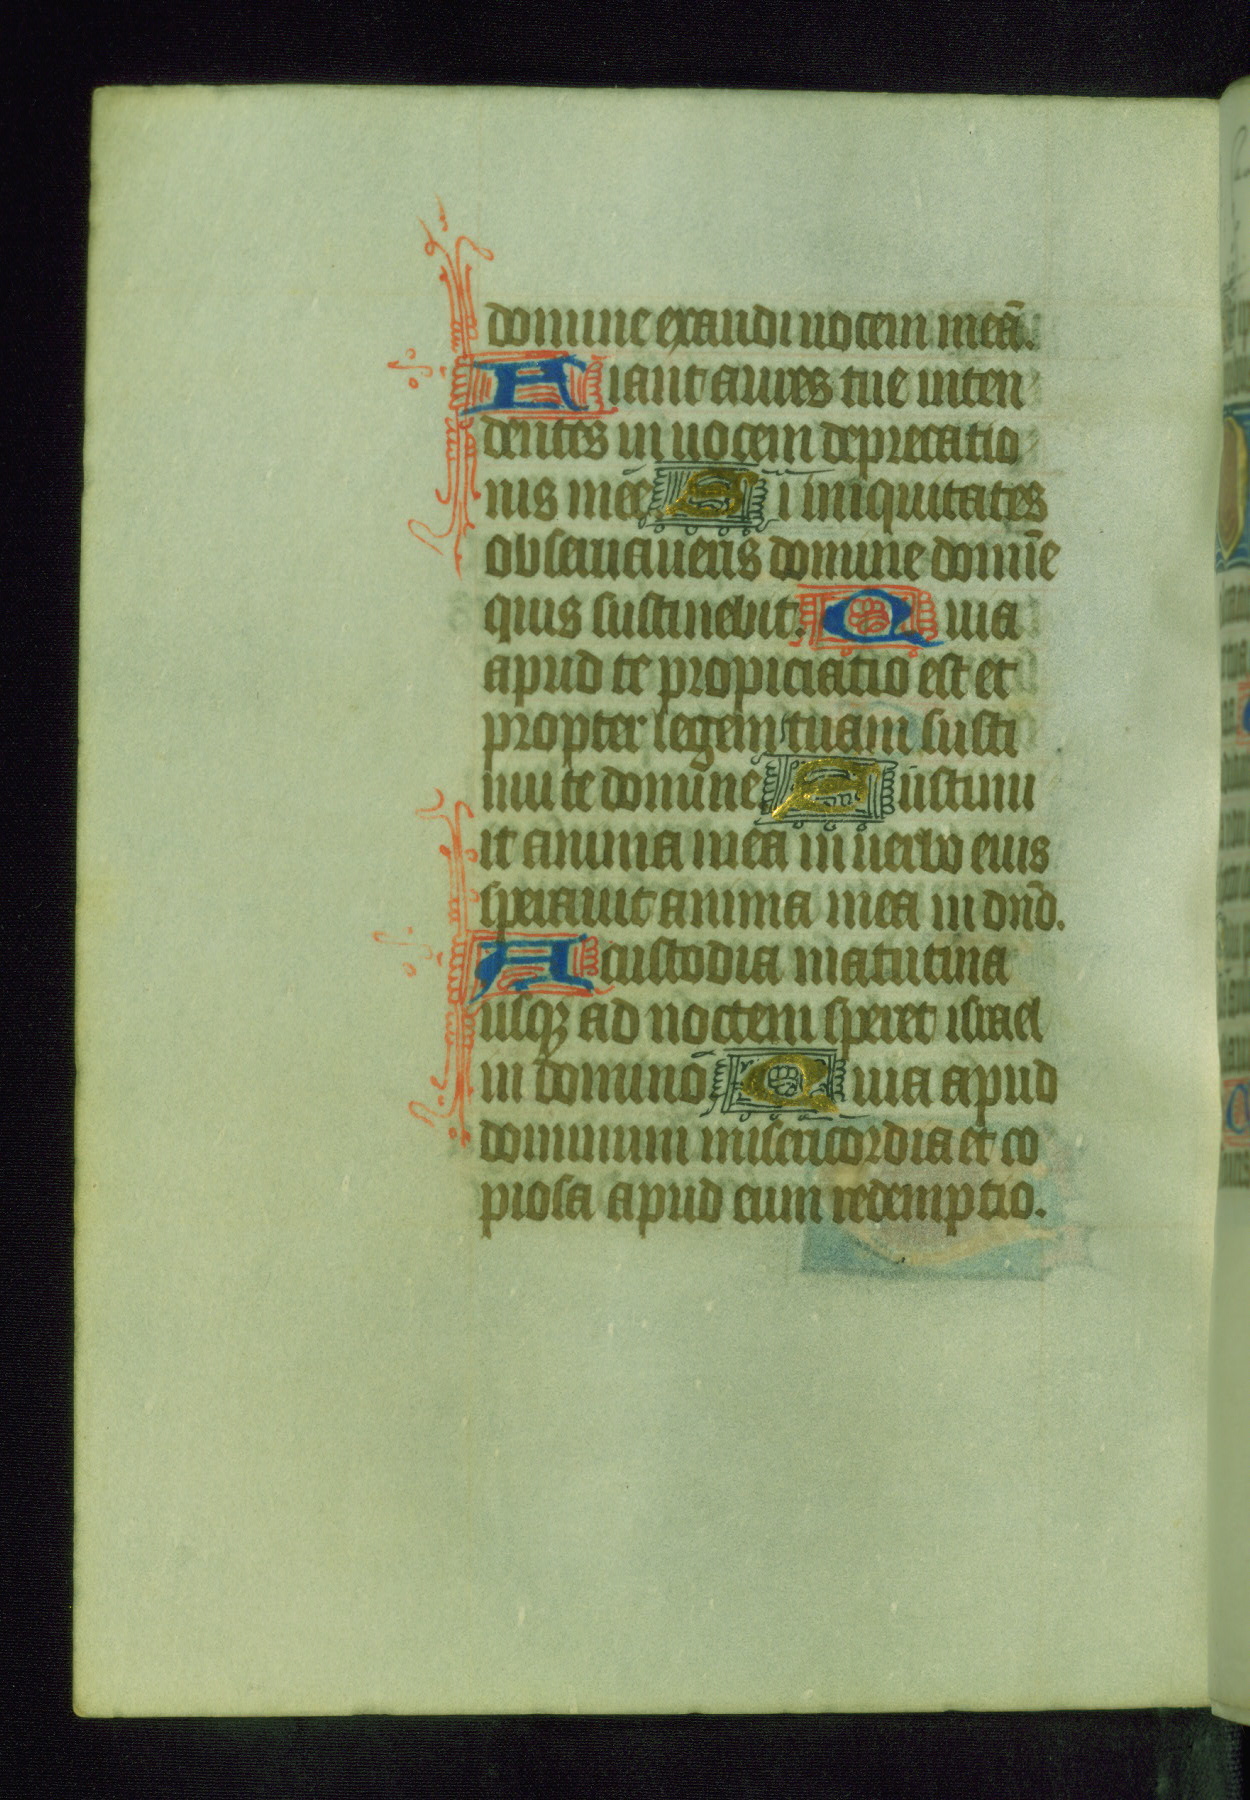 domine exaudi uocem meā.
Fiant aures tue inten
dentes in uocem deprecatio
nis mee Si iniquitates
obseruaueris domine domīe
quis sustinebit. Quia
apud te propiciatio est et
propter legem tuam susti
nui te domine Sustinu
it anima mea in uerbo eius
sperauit anima mea in dn̄o.
A custodia matutina
usqꝫ ad noctem speret israel
in domino Quia apud
dominum misericordia et co
piosa apud eum redemptio.